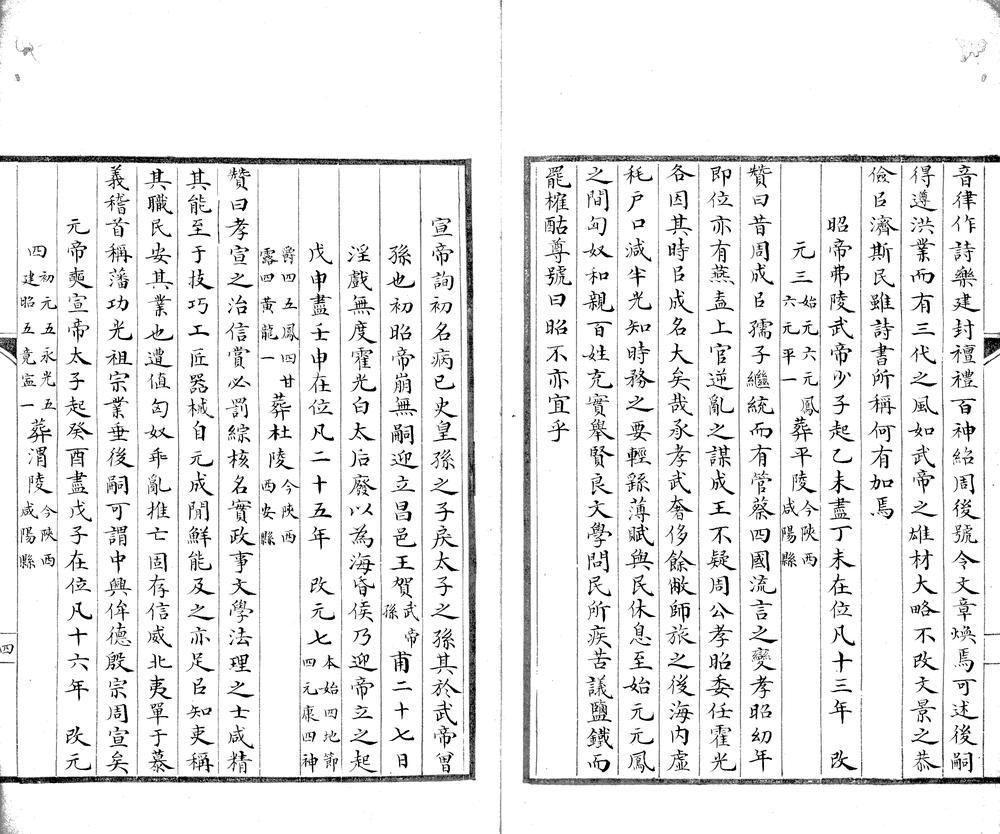 音律作詩樂建封禪禮百神紹周後號令文章煥焉可述後嗣
得遵洪業而有三代之風如武帝之雄材大略不改文景之恭
儉㠯濟斯民雖詩書所稱何有加焉
昭帝弗陵武帝少子起乙未盡丁未在位凡十三年 改
元三始元六元鳳六元平一葬平陵今陝西咸陽縣
贊曰昔周成㠯孺子繼統而有管蔡四國流言之變孝昭幼年
即位亦有燕盍上官逆亂之謀成王不疑周公孝昭委任霍光
各因其時㠯成名大矣哉承孝武奢侈餘敝師旅之後海內虛
耗戶口減半光知時務之要輕繇薄賦與民休息至始元元鳳
之間匈奴和親百姓充實舉賢良文學問民所疾苦議鹽鐵而
罷榷酤尊號曰昭不亦宜乎
宣帝詢初名病已史皇孫之子戾太子之孫其於武帝曾
孫也初昭帝崩無嗣迎立昌邑王賀武帝孫甫二十七日
淫戲無度霍光白太后廢以為海昏侯乃迎帝立之起
戊申盡壬申在位凡二十五年 改元七本始四地節四元康四神
爵四五鳳四甘露四黃龍一葬杜陵今陝西西安縣
贊曰孝宣之治信賞必罰綜核名實政事文學法理之士咸精
其能至于技巧工匠器械自元成閒鮮能及之亦足㠯知吏稱
其職民安其業也遭值匈奴乖亂推亡固存信威北夷單于慕
義稽首稱藩功光祖宗業垂後嗣可謂中興侔德殷宗周宣矣
元帝奭宣帝太子起癸酉盡戊子在位凡十六年 改元
四初元五永光五建昭五竟寧一葬渭陵今陝西咸陽縣
四